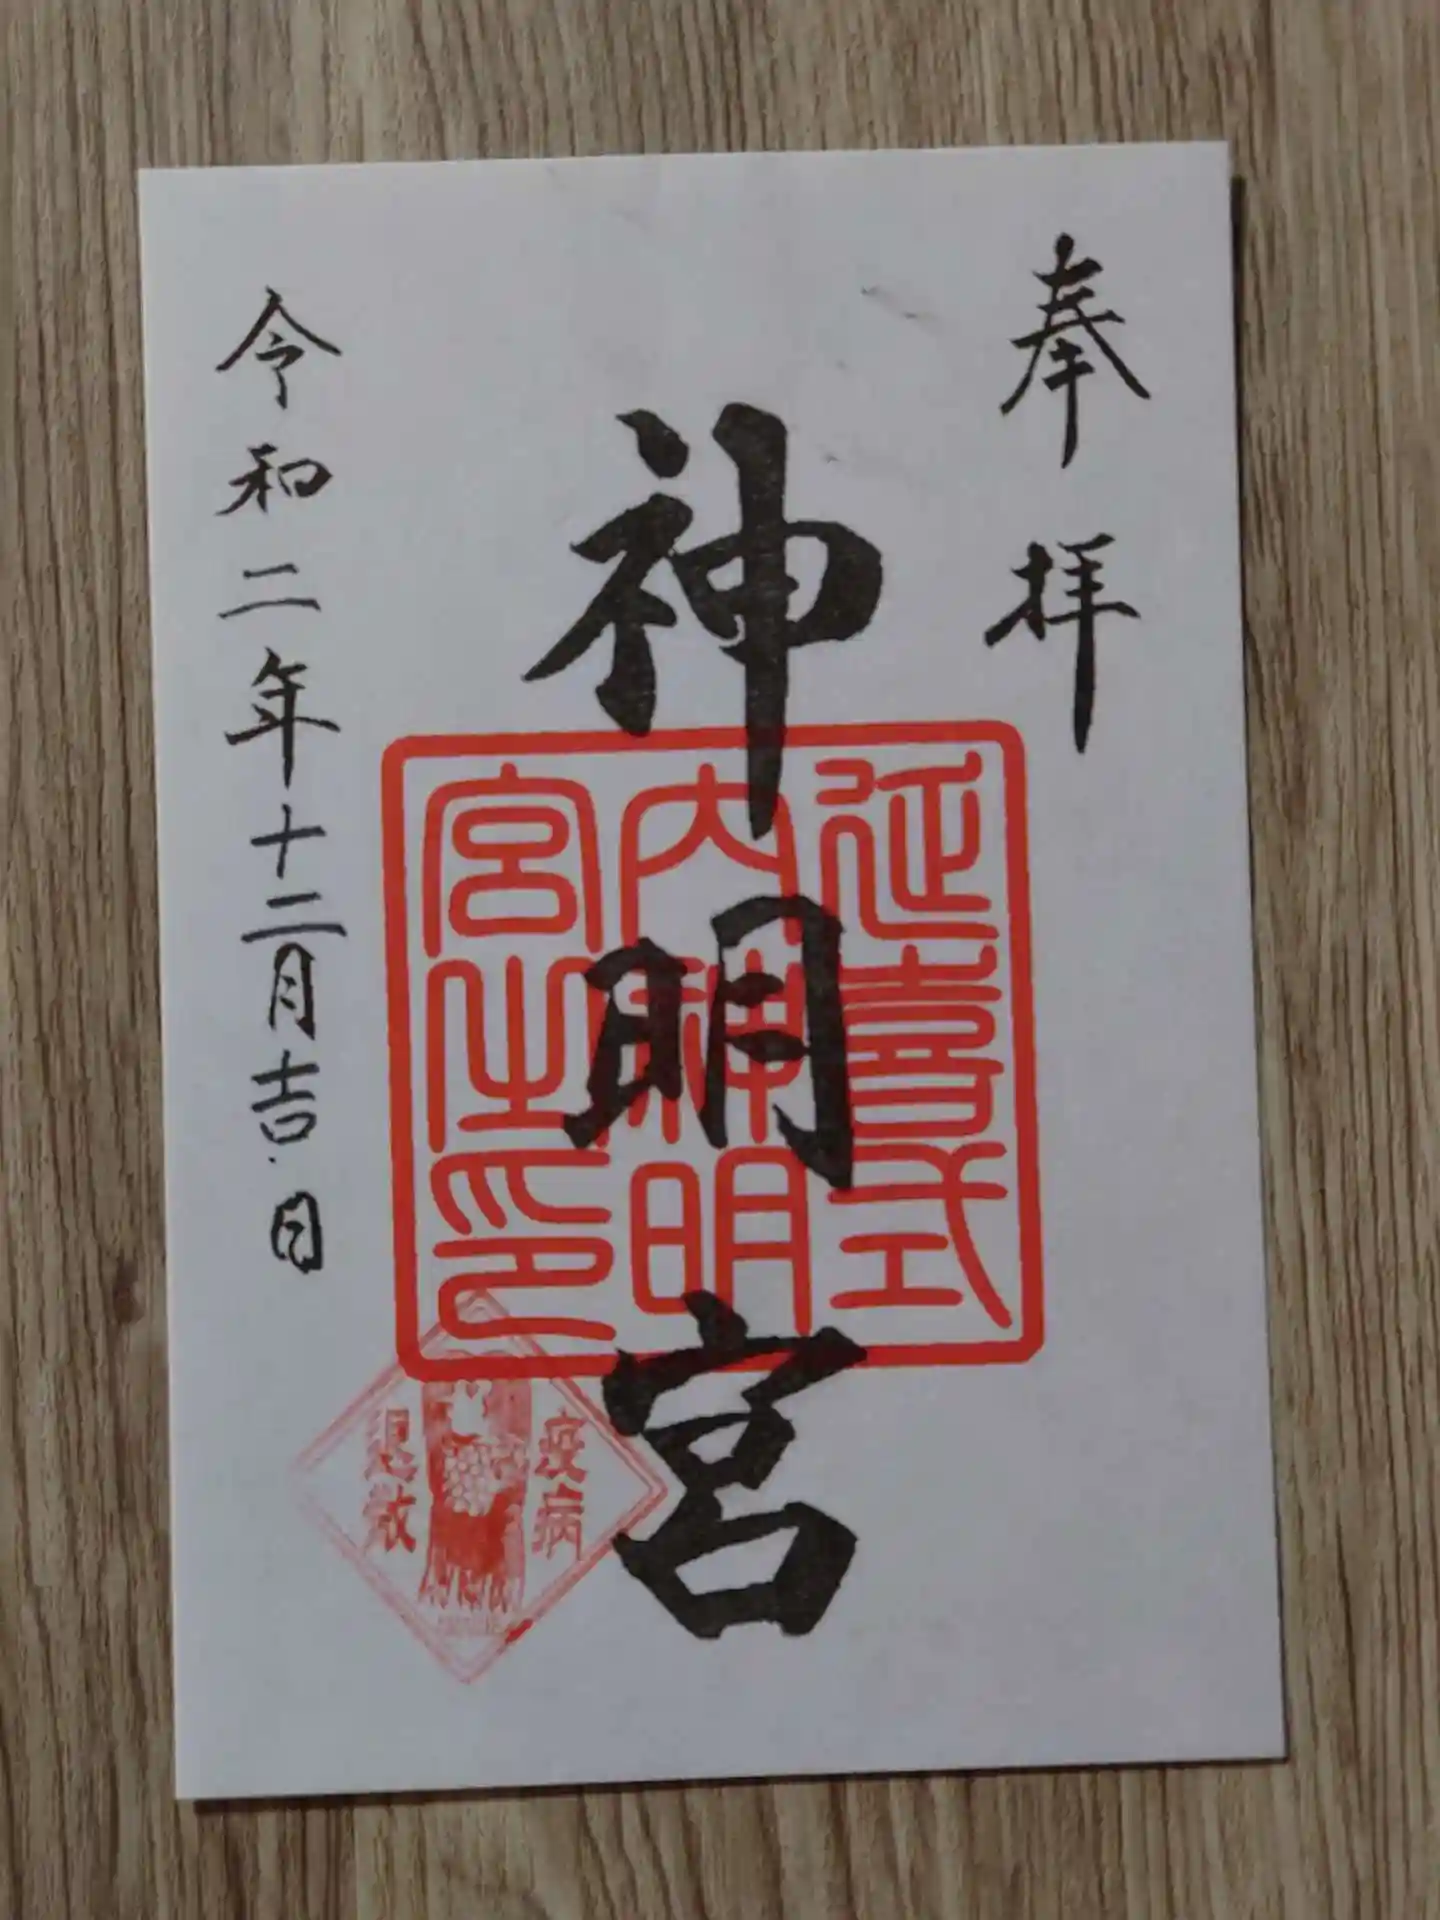 奉拝
神明宮
延喜式
内神明
宮之印
令和二年十二月吉日
疫病
退散